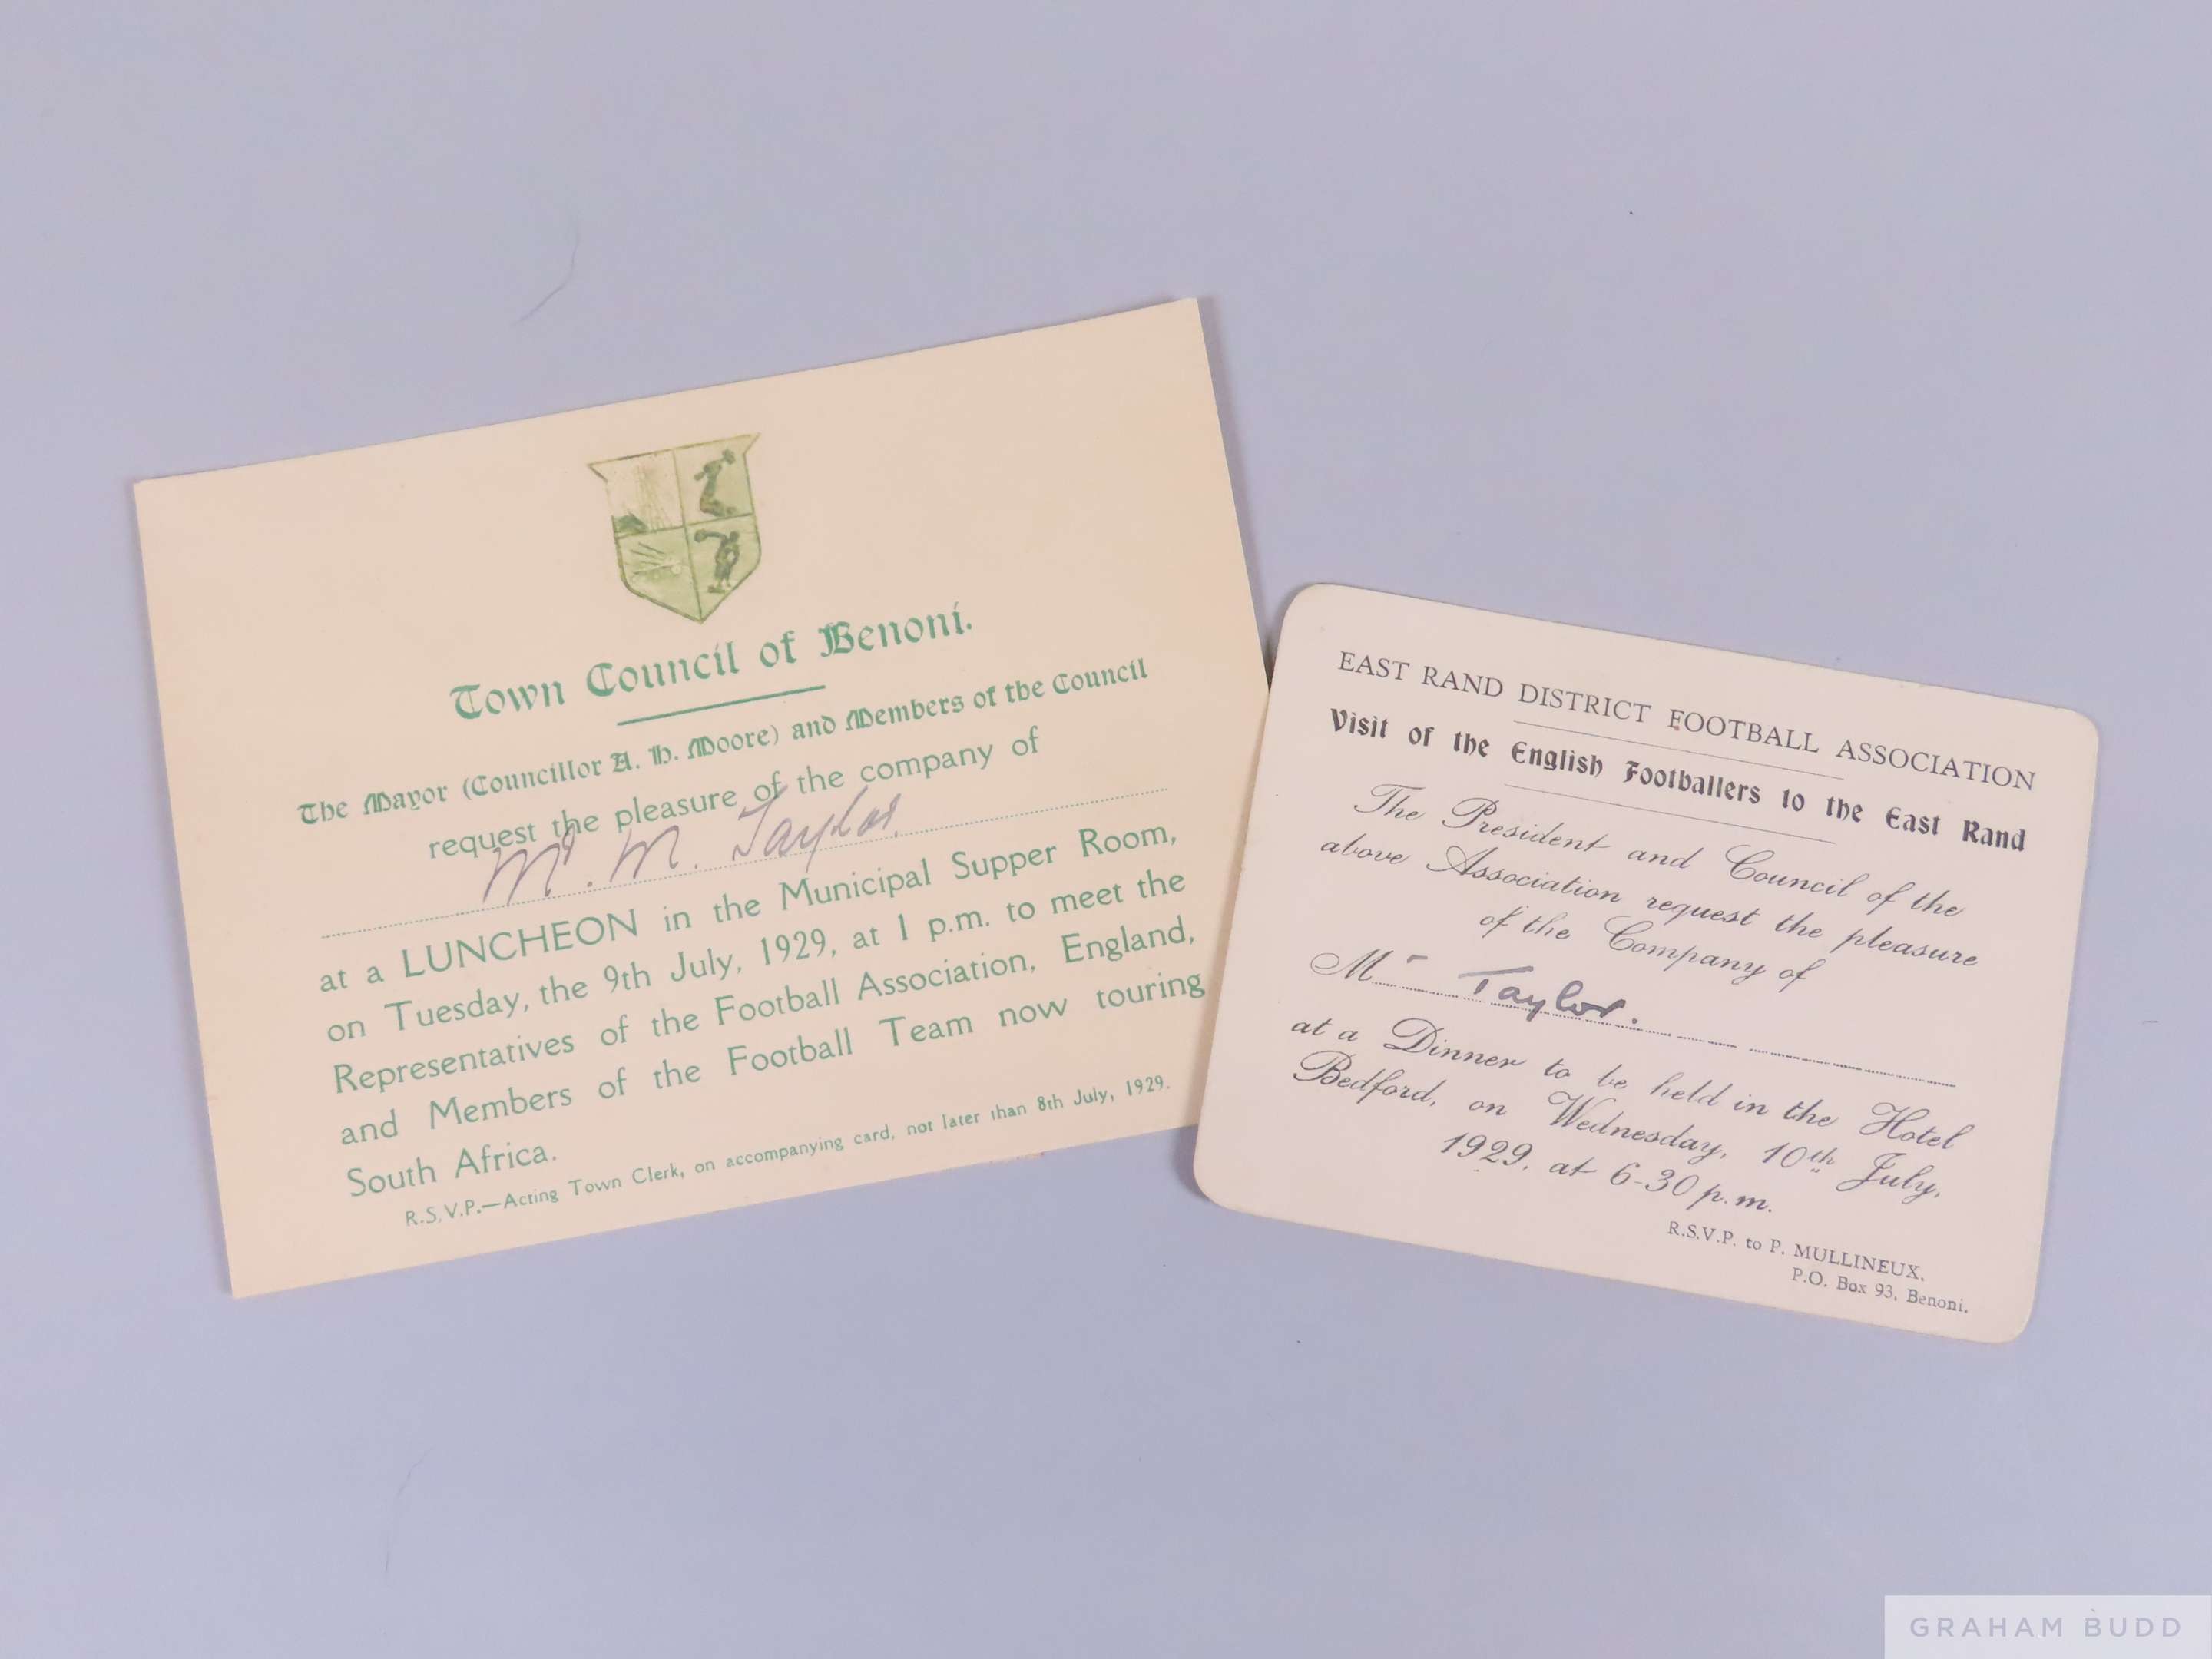 Town Council of Benoni.
The Mayor (Councillor A. H. Moore) and Members of the Council
request the pleasure of the company of
Mr. M. Taylor
at a LUNCHEON in the Municipal Supper Room,
on Tuesday, the 9th July, 1929, at 1 p.m. to meet the
Representatives of the Football Association, England,
and Members of the Football Team now touring
South Africa.
R.S.V.P.—Acting Town Clerk, on accompanying card, not later than 8th July, 1929.
EAST RAND DISTRICT FOOTBALL ASSOCIATION
Visit of the English Footballers to the East Rand
The President and Council of the
above Association request the pleasure
of the Company of
Mr Taylor.
at a Dinner to be held in the Hotel
Bedford, on Wednesday, 10th July,
1929, at 6-30 p.m.
R.S.V.P. to P. MULLINEUX,
P.O. Box 93, Benoni.
GRAHAM BUDD